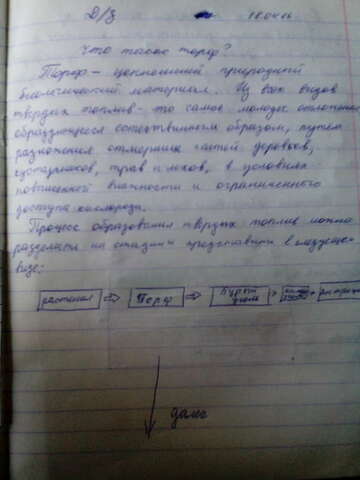 Д/З 18.04.06
Что такое торф?
Торф – ценнейший природный
биологический материал. Из всех видов
твердых топлив – это самое молодое отложение
образующееся естественным образом, путем
разложения отмерших частей деревьев,
кустарников, трав и мхов, в условиях
повышенной влажности и ограниченного
доступа кислорода.
Процесс образования твердых топлив можно
разделить на стадии и представить в следующем
виде:
растения ⇒ Торф ⇒ Бурый уголь →
далее